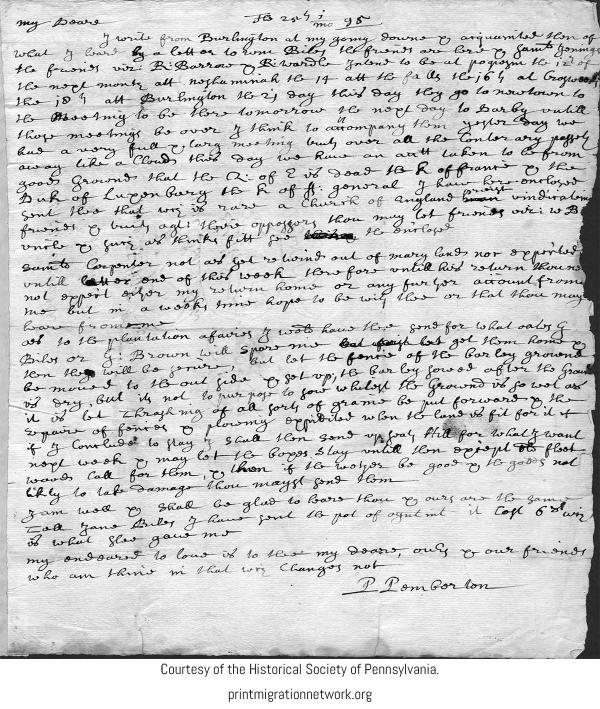 my Deare The 25th 1 mo 95
I write from Burlington at my going downe & acquainted thee of
what I heard by a letter to Wm Biles the friends are here & Samll Jenings
the friends viz: R: Barrow & R: Wardle Intend to be at the 12 of
the next month att neshaminah the 14 att the falls the 16th at
the 18th att Burlington the 21 day this day they go to newtown to
the Meeting to be there tomorrow the next day to Darby untill
those meetings be over I think to accompany them yesterday we
had a very full & large meeting but over all the Contrary
away like a Cloud this day we have an acctt taken to be from
good Ground that the Q: of E is dead the K of france & the
Duk of Luxenburg the K of general I have here enclosed
sent thee that wch is rare a Church of England vindication
friends & agt there opposers thou may let friends viz: W B
uncle & such as thinks fitt see the enclosed
Samll Carpenter not as yet returnd out of mary land nor expected
untill latter end of this week therefore untill his return thou
not expect either my return home or any further account from
me but in a weeks time hope to be with thee or that thou may
heare from me
as to the plantation afaires I would have thee send for what oates G
Biles or G: Brown will spare me let get them home &
then they will be secure, but let the fence of the barley ground
be moved to the out side & set up, the barley sowed after the Ground
is dry, but its not to purpose to sow whilest the Ground is so wet as
it is let Thrashing of all sorts of graine be put forward & the
repaire of fences & plowing expedited when the land is fit for it if
if I conclude to stay I shall then send up for what I want
next week & may let the boxes stay untill then except the fleet
woods call for them, & then if the wether be good & the goods not
likly to take damage thou mayst send them
I am well & shall be glad to heare thou & ours are the same
Tell Jane I have sent the pot of it Cost 6s wch
is what shee gave me
my endeared to love is to thee my deare, ours & our friends
who am thine in that wch Changes not
P Pemberton
Courtesy of the Historical Society of Pennsylvania.
printmigrationnetwork.org